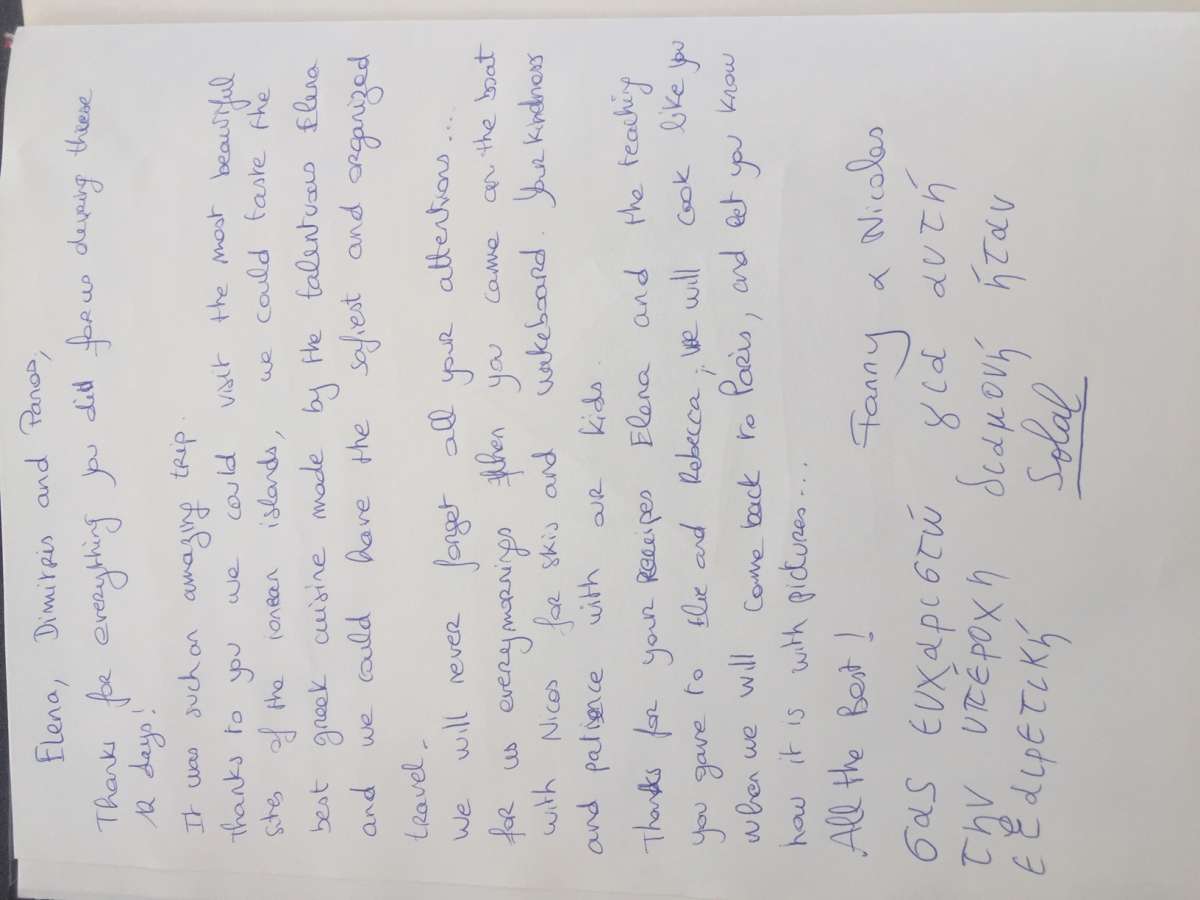 Elena, Dimitris and Panos,
Thanks for everything you did for us during theese
12 days!
It was such an amazing trip.
Thanks to you we could visit the most beautiful
sites of the ionean islands, we could taste the
best greek cuisine made by the talentuous Elena
and we could have the safiest and organized
travel.
We will never forget all your attentions....
for us everymornings when you came on the boat
with Nicos for skis and wakeboard. Your kindness
and patience with our kids.
Thanks for your Receipes Elena and the teaching
you gave to and Rebecca; we will cook like you
when we will come back to Paris, and let you know
how it is with pictures...
All the Best! Fanny & Nicolas
σας ευχαριστώ για αυτή
την υπέροχη διαμονή ήταν
εξαιρετική Solal